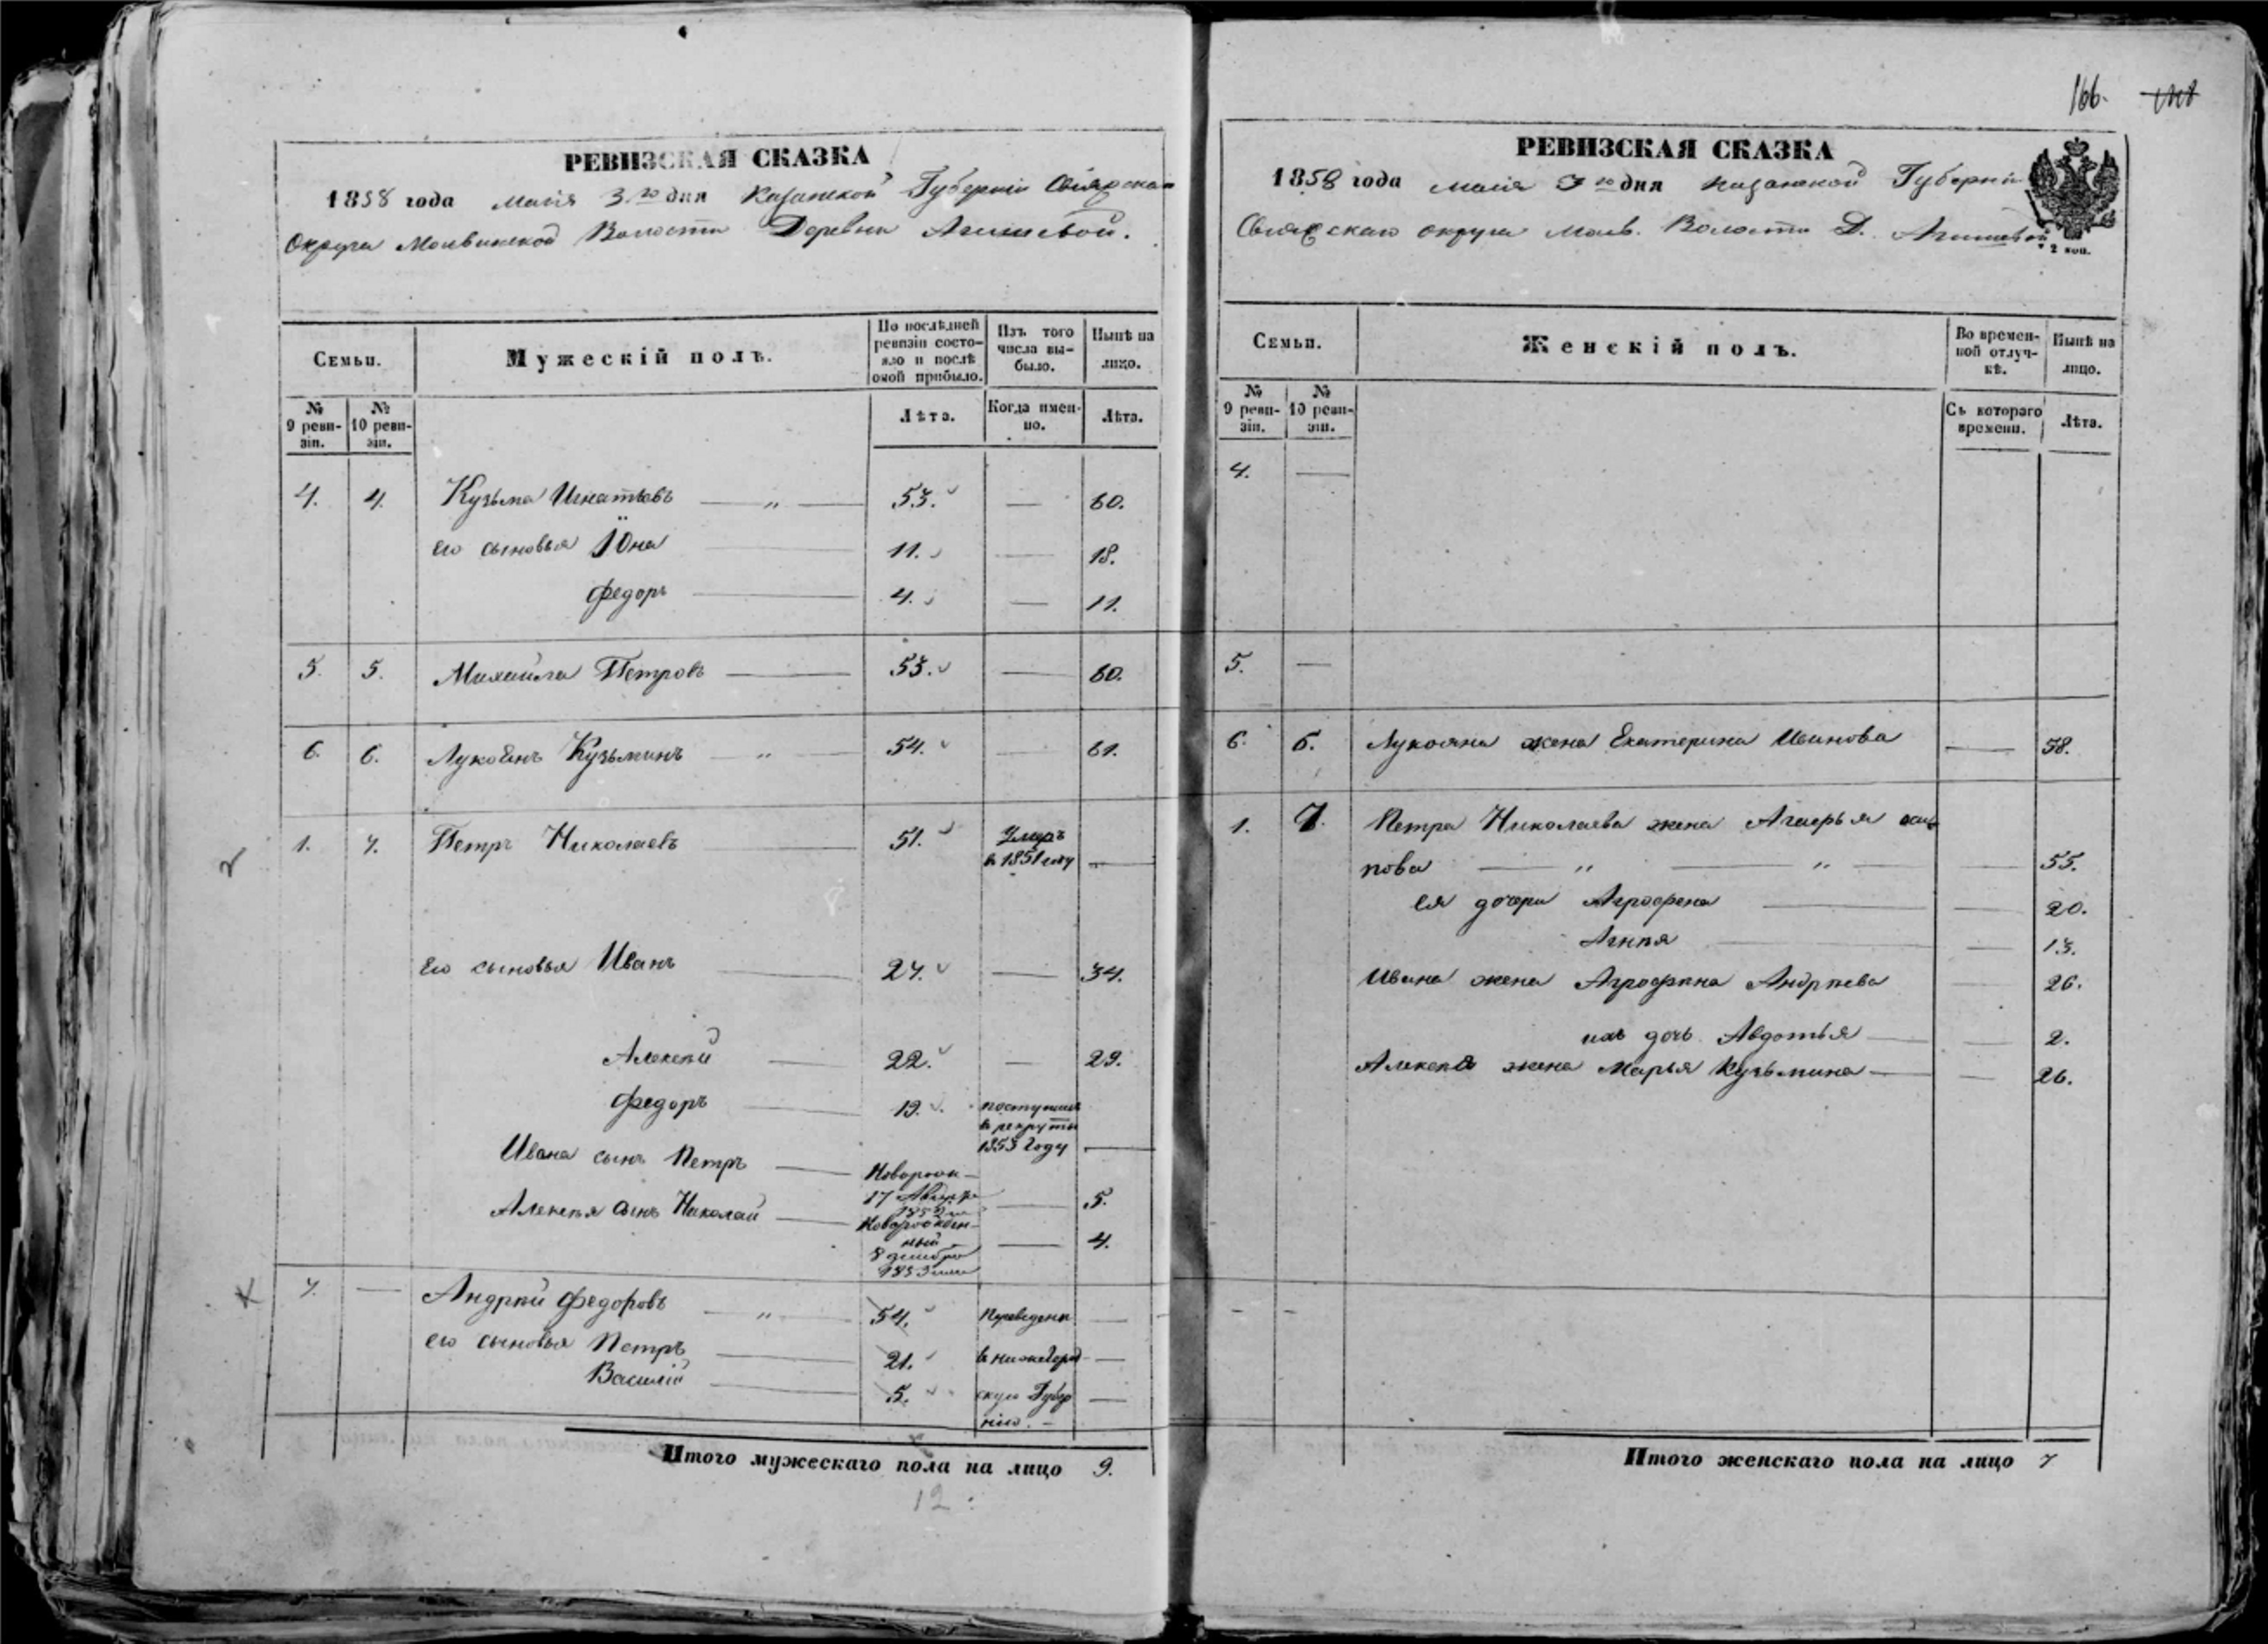 166.
РЕВИЗСКАЯ СКАЗКА
1858 года маія 3го дня Казанской Губерніи Свіяжскаго
Округа Молвинской Волости Деревни Агишевой.
Семьи.
Мужескій полъ.
По послѣдней ревизіи состо-
яло и послѣ
оной прибыло.
Изъ того
числа вы-
было.
Нынѣ на
лицо.
№
9 реви-
зіи.
№
10 реви-
зіи.
Лѣта.
Когда имен-
но.
Лѣта.
4. 4. Кузьма Игнатьевъ — „ — 53. — 60.
его сыновья Іона — 11. — 18.
Федоръ — 4. — 11.
5. 5. Михайла Петровъ — 53. — 60.
6. 6. Лукоянъ Кузьминъ — „ — 54. — 61.
1. 7. Петръ Николаевъ — 51. Умеръ
в 1851 году —
Его сыновья Иванъ — 27. — 34.
Алексѣй — 22. — 29.
Федоръ — 19. поступилъ
в рекруты
1853 году —
Ивана сынъ Петръ — Новорож-
17 — 5.
Алексѣя сынъ Николай — Новорожден-
ный — 4.
8 декабря
1853
7. — Андрей Федоровъ — „ — 54. Переведены —
его сыновья Петръ — 21. в Нижегород- —
Василій — 5. скую Губер —
нію. —
Итого мужескаго пола на лицо 9.
12
РЕВИЗСКАЯ СКАЗКА
1858 года маія 3го дня Казанской Губерніи
Свіяжскаго округа Молв. Волости Д. Агишевой
2 коп.
Семьи.
Женскій полъ.
Во времен-
ной отлуч-
кѣ.
Нынѣ на
лицо.
№
9 реви-
зіи.
№
10 реви-
зіи.
Съ котораго
времени.
Лѣта.
4. —
5. —
6. 6. Лукояна жена Екатерина Иванова — 58.
1. 7. Петра Николаева жена
пова — „ — „ — 55.
ея дочери Агрофена — 20.
Агнѣя — 13.
Ивана жена Агрофѣна Андрѣева — 26.
ихъ дочь Авдотья — 2.
Алексѣя жена Марья Кузьмина — 26.
Итого женскаго пола на лицо 7